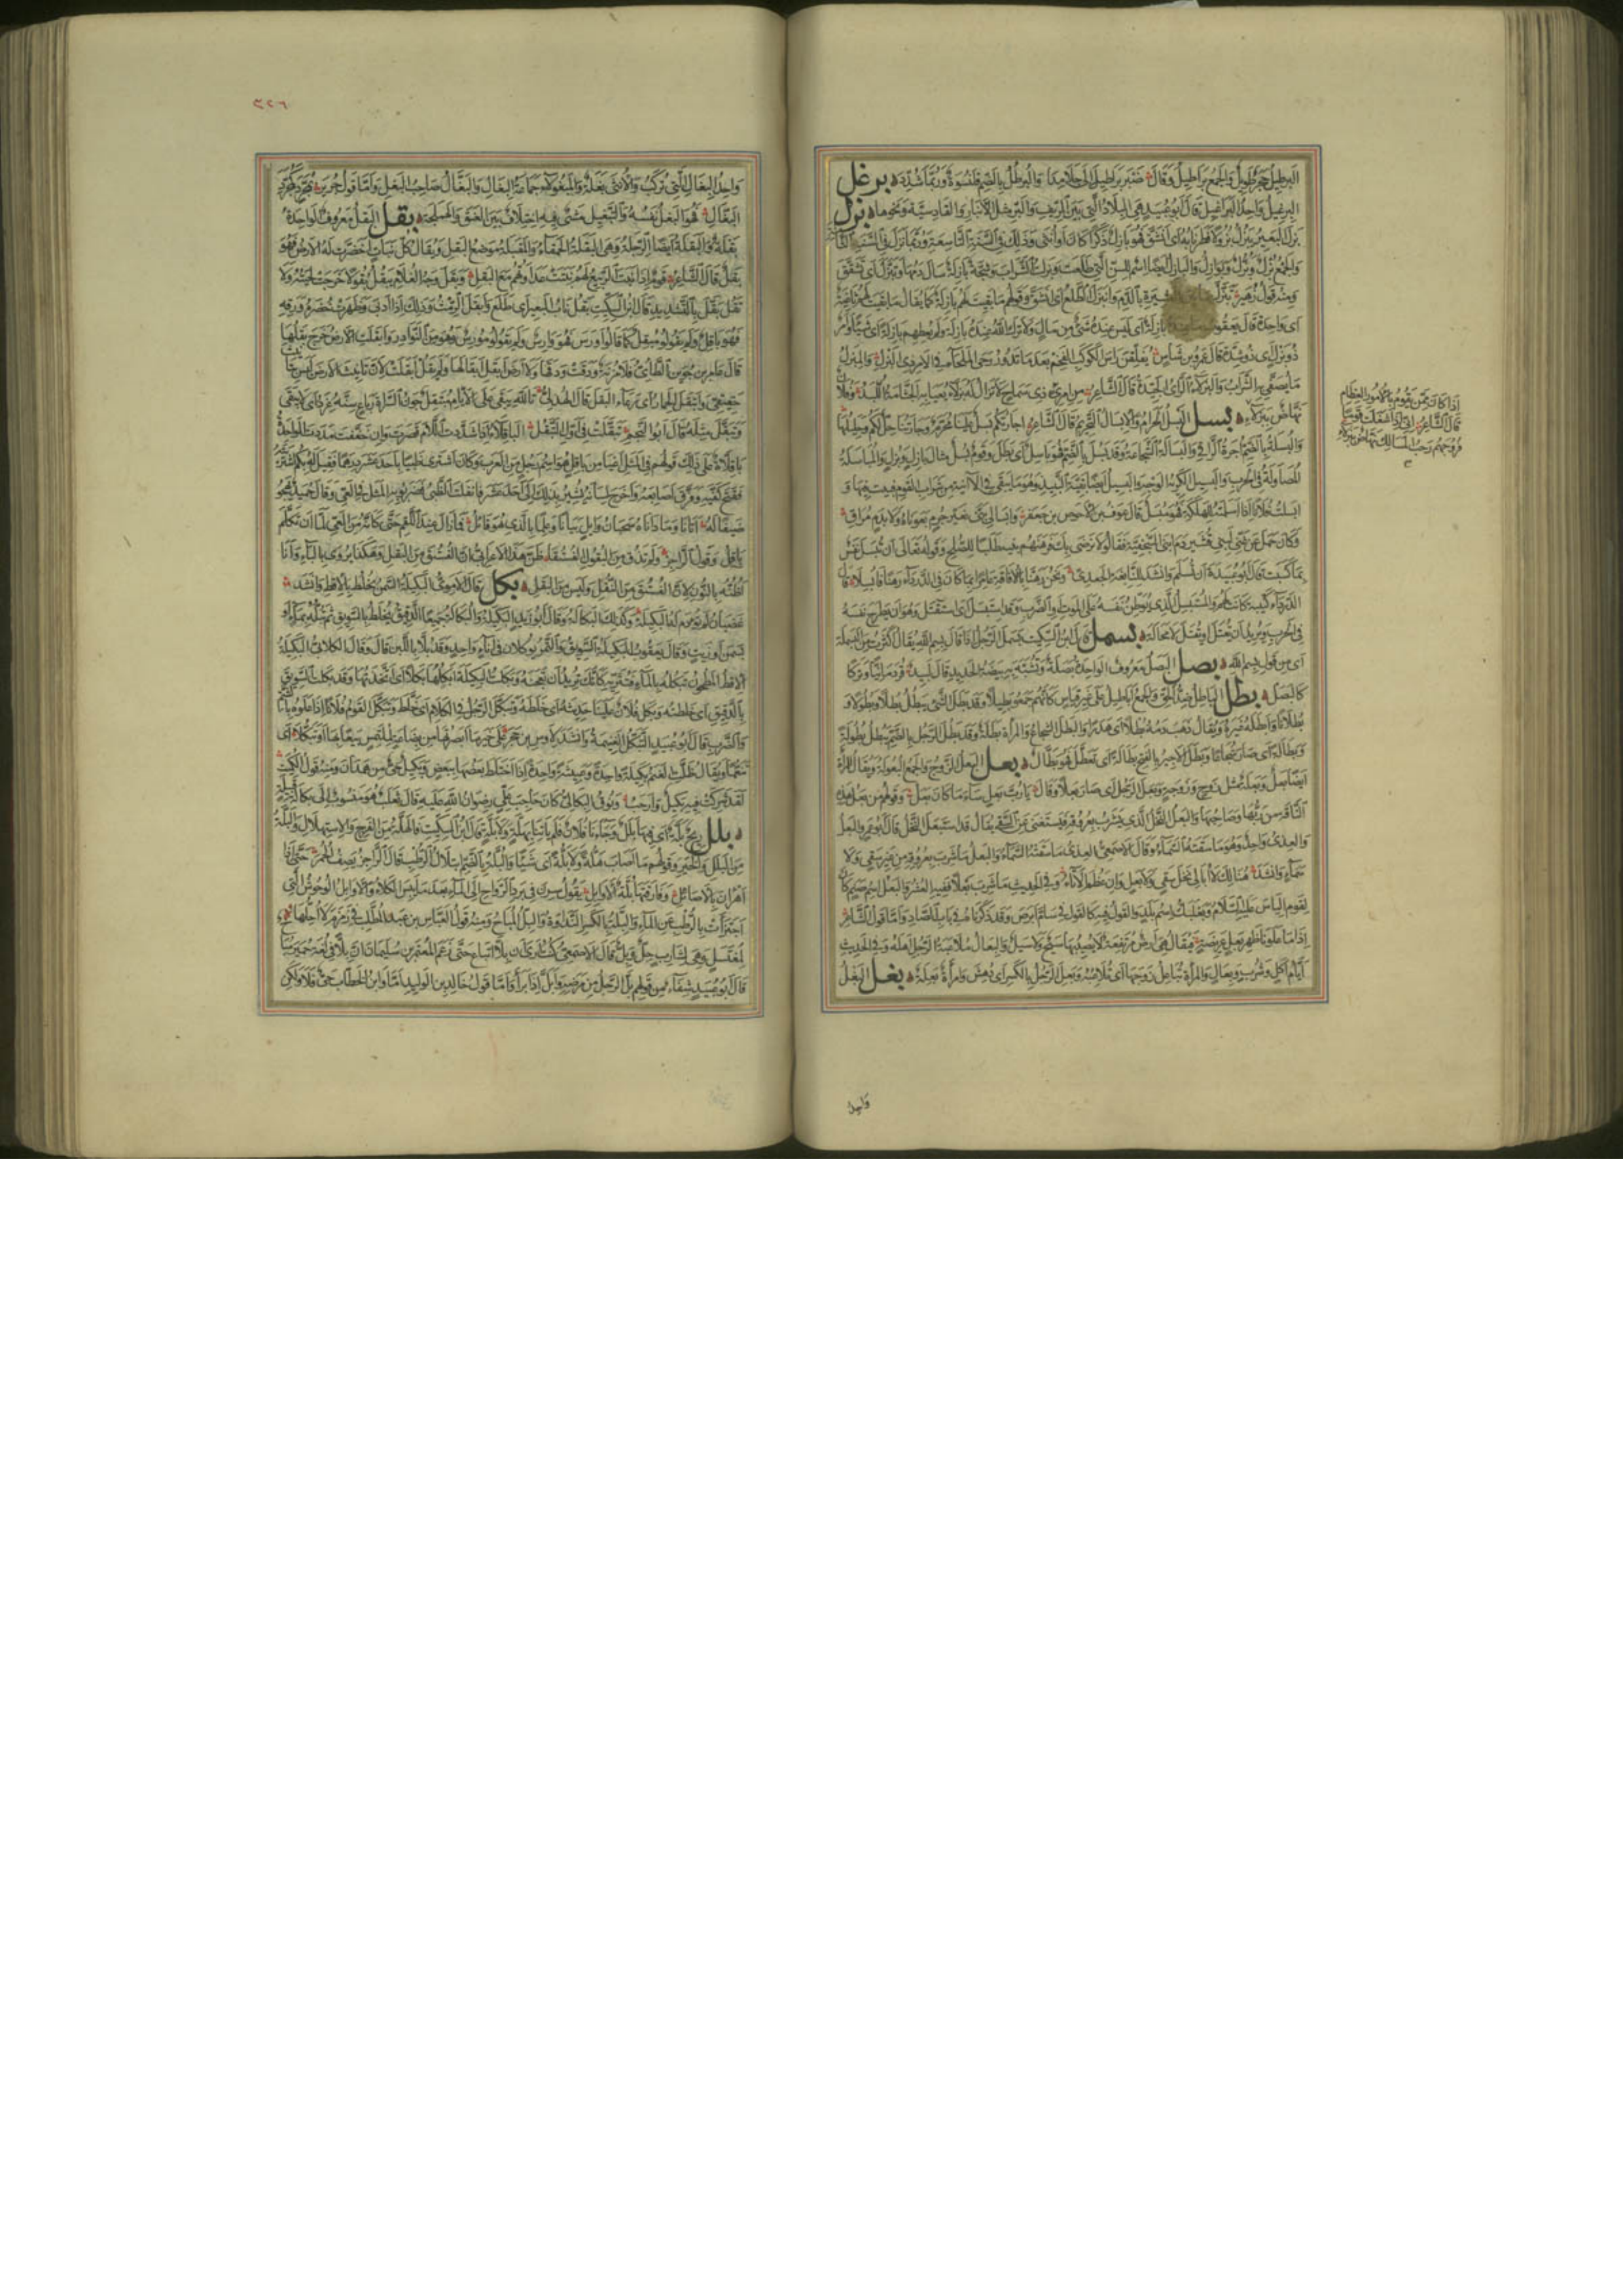 البرطيل حجر طويل والجمع براطيل وقال ضبر براطيل الى جلامدا والبرطل بالضم قلنسوة وربما شدد برغل
البرغيل واحد البراغيل قال ابو عبيد هي البلاد التي بين الريف والبر مثل الانبار والقادسية ونحوهما بزل
بزل البعير يبزل بزولا فطر نابه اى انشق فهو بازل ذكرا كان او انثى وذلك في السنة التاسعة وربما بزل في السنة الثامنة
والجمع بزل وبزل وبوازل والبازل ايضا اسم للسن التي طلعت وبزلت الشراب وشجة بازلة سال دمها وتبزل اى تشقق
ومنه قول زهير تبزل ما بين العشيرة بالدم وانبزل الطلع اى انشق وقولهم ما بقيت لهم بازلة كما يقال ما بقيت لهم ثاغية
اى واحدة قال يعقوب ما عنده بازلة اى ليس عنده شئ من مال ولا ترك الله عنده بازلة ولم يعطهم بازلة اى شيئا وامر
ذو بزل اى ذو شدة قال عمرو بن شاس يفلقن راس الكوكب الفخم بعد ما تدور رحى الملحاء في الامر ذى البزل والمبزل
ما يصفى به الشراب والبزلاء الراى الجيد قال الشاعر من امرئ ذى سماح لا تزال له بزلاء يعيا بها الجثامة اللبد وفلان
نهاض ببزلاء بسل البسل الحرام والابسال التحريم قال الشاعر اجارتكم بسل علينا محرم وجارتنا حل لكم وحليلها
والبسلة بالضم اجرة الراقى والبسالة الشجاعة وقد بسل بالضم فهو باسل اى بطل وقوم بسل مثال بازل وبزل والمباسلة
المصاولة في الحرب والبسيل الكريه الوجه والبسيل ايضا بقية النبيذ وهو ما يبقى في الآنية من شراب القوم فيبيت فيها و
ابسلت فلانا اذا اسلمته للهلكة فهو مبسل قال عوف بن الاحوص بن جعفر وابسالى بنى بغير جرم بعوناه ولا بدم مراق
وكان حمل عن غنى لبنى قشير دم ابنى السجفية فقالوا لا نرضى بك فرهنهم بنيه طلبا للصلح وقوله تعالى ان تبسل نفس
بما كسبت قال ابو عبيدة ان تسلم وانشد للنابغة الجعدى ونحن رهنا بالافاقة عامرا بما كان في الدرداء رهنا فابسلا قال
الدرداء كتيبة كانت لهم والمستبسل الذى يوطن نفسه على الموت والضرب وقد استبسل اى استقتل وهو ان يطرح نفسه
في الحرب ويريد ان يقتل او يقتل لا محالة بسمل قال ابن السكيت بسمل الرجل اذا قال بسم الله يقال اكثرت من البسملة
اى من قول بسم الله بصل البصل معروف الواحدة بصلة وتشبه به بيضة الحديد قال لبيد قردمانيا وتركا
كالبصل بطل الباطل ضد الحق والجمع اباطيل على غير قياس كانهم جمعوا ابطيلا وقد بطل الشئ يبطل بطلا وبطولا و
بطلانا وابطله غيره ويقال ذهب دمه بطلا اى هدرا والبطل الشجاع والمراة بطلة وقد بطل الرجل بالضم يبطل بطولة
وبطالة اى صار شجاعا وبطل الاجير بالفتح بطالة اى تعطل فهو بطال بعل البعل الزوج والجمع البعولة ويقال للمراة
ايضا بعل وبعلة مثل زوج وزوجة وبعل الرجل اى صار بعلا وقال يا رب بعل ساء ما كان بعل وقولهم من بعل هذه
الناقة من ربها وصاحبها والبعل النخل الذى يشرب بعروقه فيستغنى عن السقى يقال قد استبعل النخل قال ابو عمرو البعل
والعذى واحد وهو ما سقته السماء وقال الاصمعى العذى ما سقته السماء والبعل ما شرب بعروقه من غير سقى ولا
سماء وانشد هنالك لا ابالى نخل سقى ولا بعل وان عظم الاتاء وفي الحديث ما شرب بعلا ففيه العشر والبعل اسم صنم كان
لقوم الياس عليه السلام وبعلبك اسم بلد والقول فيه كالقول في سام ابرص وقد ذكرناه في باب الصاد واما قول الشاعر
اذا ما علونا ظهر بعل عريضة فيقال هى ارض مرتفعة لا يصيبها سيح ولا سيل والبعال ملاعبة الرجل اهله وفي الحديث
ايام اكل وشرب وبعال والمراة تباعل زوجها اى تلاعبه وبعل الرجل بالكسر اى دهش وامراة بعلة بغل البغل
واحد
اذا كان ممن يقوم بالامور العظام
قال الشاعر انى اذا شغلت قوما
فروجهم رحب المسالك نهاض ببزلاء
٣٢٦
واحد البغال التى تركب والانثى بغلة والمبغولاء جماعة البغال والبغال صاحب البغل واما قول جرير
البغال فهو البغل نفسه والتبغيل مشى فيه اختلاف بين العنق والهملجة بقل البقل معروف الواحدة
بقلة والبقلة ايضا الرجلة وهى البقلة الحمقاء والمبقلة موضع البقل ويقال كل نبات اخضرت له الارض فهو
بقل قال الشاعر قوم اذا نبت الربيع لهم نبتت عداوتهم مع البقل وبقل وجه الغلام يبقل بقولا خرجت لحيته ولا
تقل بقل بالتشديد قال ابن السكيت بقل ناب البعير اى طلع وابقل الرمث وذلك اذا ادبى وظهرت خضرة ورقه
فهو باقل ولم يقولوا مبقل كما قالوا اورس فهو وارس ولم يقولوا مورس وهو من النوادر وابقلت الارض خرج بقلها
قال عامر بن جوين الطائى فلا مزنة ودقت ودقها ولا ارض ابقل ابقالها ولم يقل ابقلت لان تانيث الارض ليس بتانيث
حقيقى وابتقل الحمار اى رعى البقل قال الهذلى تالله يبقى على الايام مبتقل جون السراة رباع سنه غرد اى لا يبقى
وتبقل مثله قال ابو النجم تبقلت في اول التبقل الباقلا اذا شددت اللام قصرت وان خففت مددت الواحدة
باقلاة على ذلك وقولهم في المثل اعيا من باقل هو اسم رجل من العرب وكان اشترى ظبيا باحد عشر درهما فقيل له بكم اشتريته
ففتح كفيه وفرق اصابعه واخرج لسانه يشير بذلك الى احد عشر فانفلت الظبى فضربوا به المثل في العى وقال حميد يهجو
ضيفا له اتانا وما داناه سحبان وائل بيانا وعلما بالذى هو قائل فما زال عند اللقم حتى كانه من العى لما ان تكلم
باقل وقول الراجز ولم تذق من البقول الفستقا ظن هذا الاعرابى ان الفستق من البقل وهكذا يروى بالباء وانا
اظنه بالنون لان الفستق من النقل وليس من البقل بكل قال الاموى البكيلة السمن يخلط بالاقط وانشد
غضبان لم تودم له البكيلة وكذلك البكالة وقال ابو زيد البكيلة والبكالة جميعا الدقيق يخلط بالسويق ثم تبله بماء او
بسمن او زيت وقال يعقوب البكيلة السويق والتمر يوكلان في اناء واحد وقد بلا باللبن قال وقال الكلابى البكيلة
الاقط المطحون تبكله بالماء فتثريه كانك تريد ان تعجنه وبكلت البكيلة ابكلها بكلا اى اتخذتها وقد بكلت السويق
بالدقيق اى خلطته وبكل فلان علينا حديثه اى خلطه وتبكل الرجل في الكلام اى خلط وتبكل القوم فلانا اذا علوه بالشتم
والضرب قال ابو عبيد التبكل الغنيمة وانشد لاوس بن حجر على خير ما ابصرتها من بضاعة لملتمس بيعا بها او تبكلا اى
تغنما ويقال ظلت الغنم بكيلة واحدة وعبيثة واحدة اذا اختلط بعضها ببعض وبكيل حى من همدان ومنه قول الكميت
لقد شركت فيه بكيل وارحب ونوف البكالى كان حاجب على رضوان الله عليه قال ثعلب هو منسوب الى بكالة قبيلة
بلل ريح بلة اى فيها بلل وجاءنا فلان فلم ياتنا بهلة ولا بلة قال ابن السكيت فالهلة من الفرح والاستهلال والبلة
من البلل والخير وقولهم ما اصاب هلة ولا بلة اى شيئا والبلة بالضم ابتلال الرطب قال الراجز يصف الحمر حتى اذا
اهرقن بالاصائل وفارقتها بلة الاوابل يقول سرن في برد الرواح الى الماء بعد ما يبس الكلا والاوابل الوحوش التى
اجتزأت بالرطب عن الماء والبلة بالكسر النداوة والبل المباح ومنه قول العباس بن عبد المطلب في زمزم لا احلها
لمغتسل وهى لشارب حل وبل قال الاصمعى كنت ارى ان بلا اتباع حتى زعم المعتمر بن سليمان ان بلا في لغة حمير مباح
قال ابو عبيد شفاء من قولهم بل الرجل من مرضه وابل اذا برا واما قول خالد بن الوليد اما وابن الخطاب حى فلا ولكن